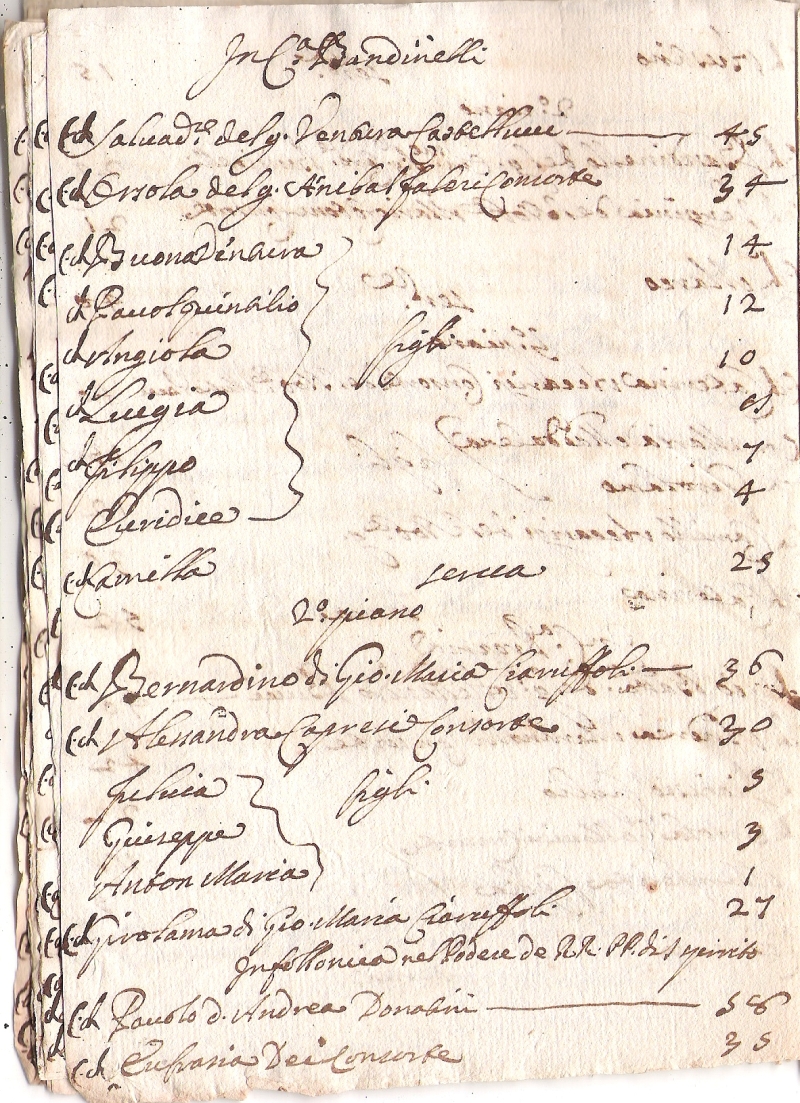 In C.ª Bandinelli
C. ch Salvad.re del q. Ventura Castellucci 45
C. ch Ersola del q. Anibal Faleri Consorte 34
C. ch Buonaventura 14
ch Pavolquintilio 12
ch Angiola figli 10
ch Luigia
ch Filippo 7
Euridice 4
C. ch Camilla serva 25
2º piano
C. ch Bernardino di Gio. Maria Ciaruffoli 36
C. ch Alessandra Capresi Consorte 30
Felicia figli 5
Giuseppe 3
Anton Maria 1
C. ch Girolama di Gio. Maria Ciaruffoli 27
In follonica nel Podere de RR. PP. di S. Spirito
C. ch Pavolo d. Andrea Donatini 56
C. ch Eufrasia Dei Consorte 35